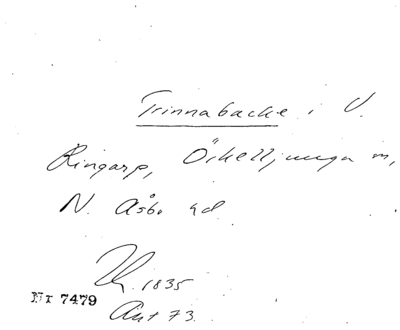 Trinnabacke i V.
Ringarp, Örkelljunga m,
N. Åsbo hd
1835
Nr 7479
Ant 73.